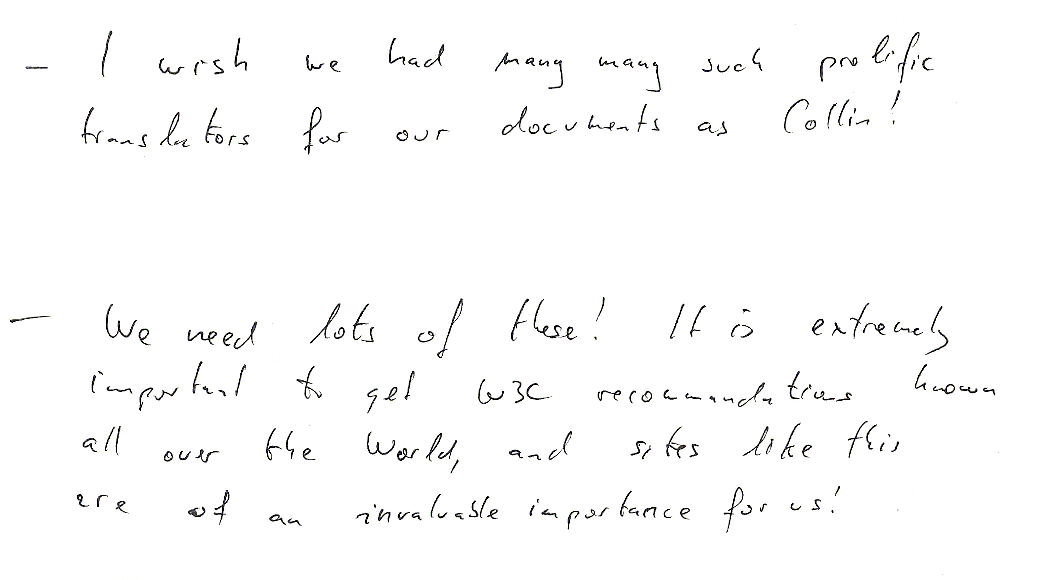 – I wish we had many many such prolific
translators for our documents as Collin!
– We need lots of these! It is extremely
important to get W3C recommandations known
all over the World, and sites like this
are of an invaluable importance for us!